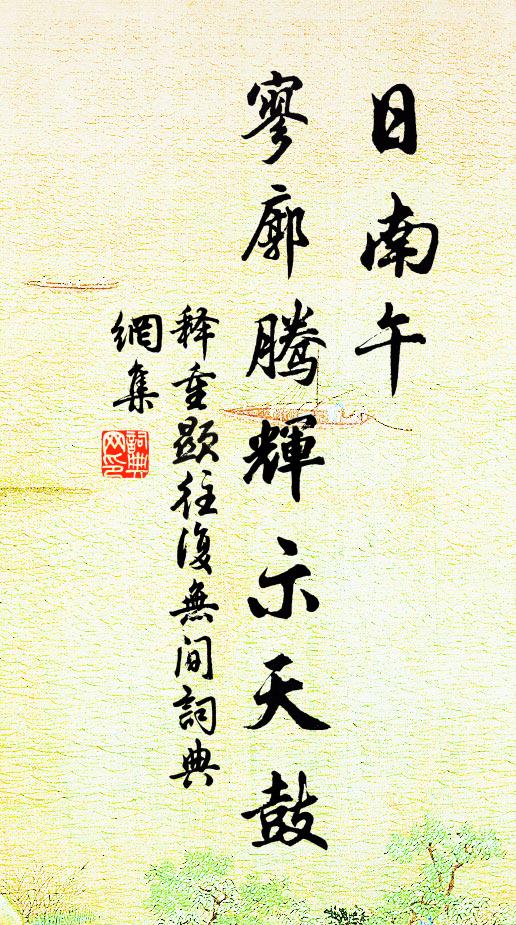 日南午
寥廓腾輝示天鼓
释重顯往復無间詞典
網集
詞典
网印